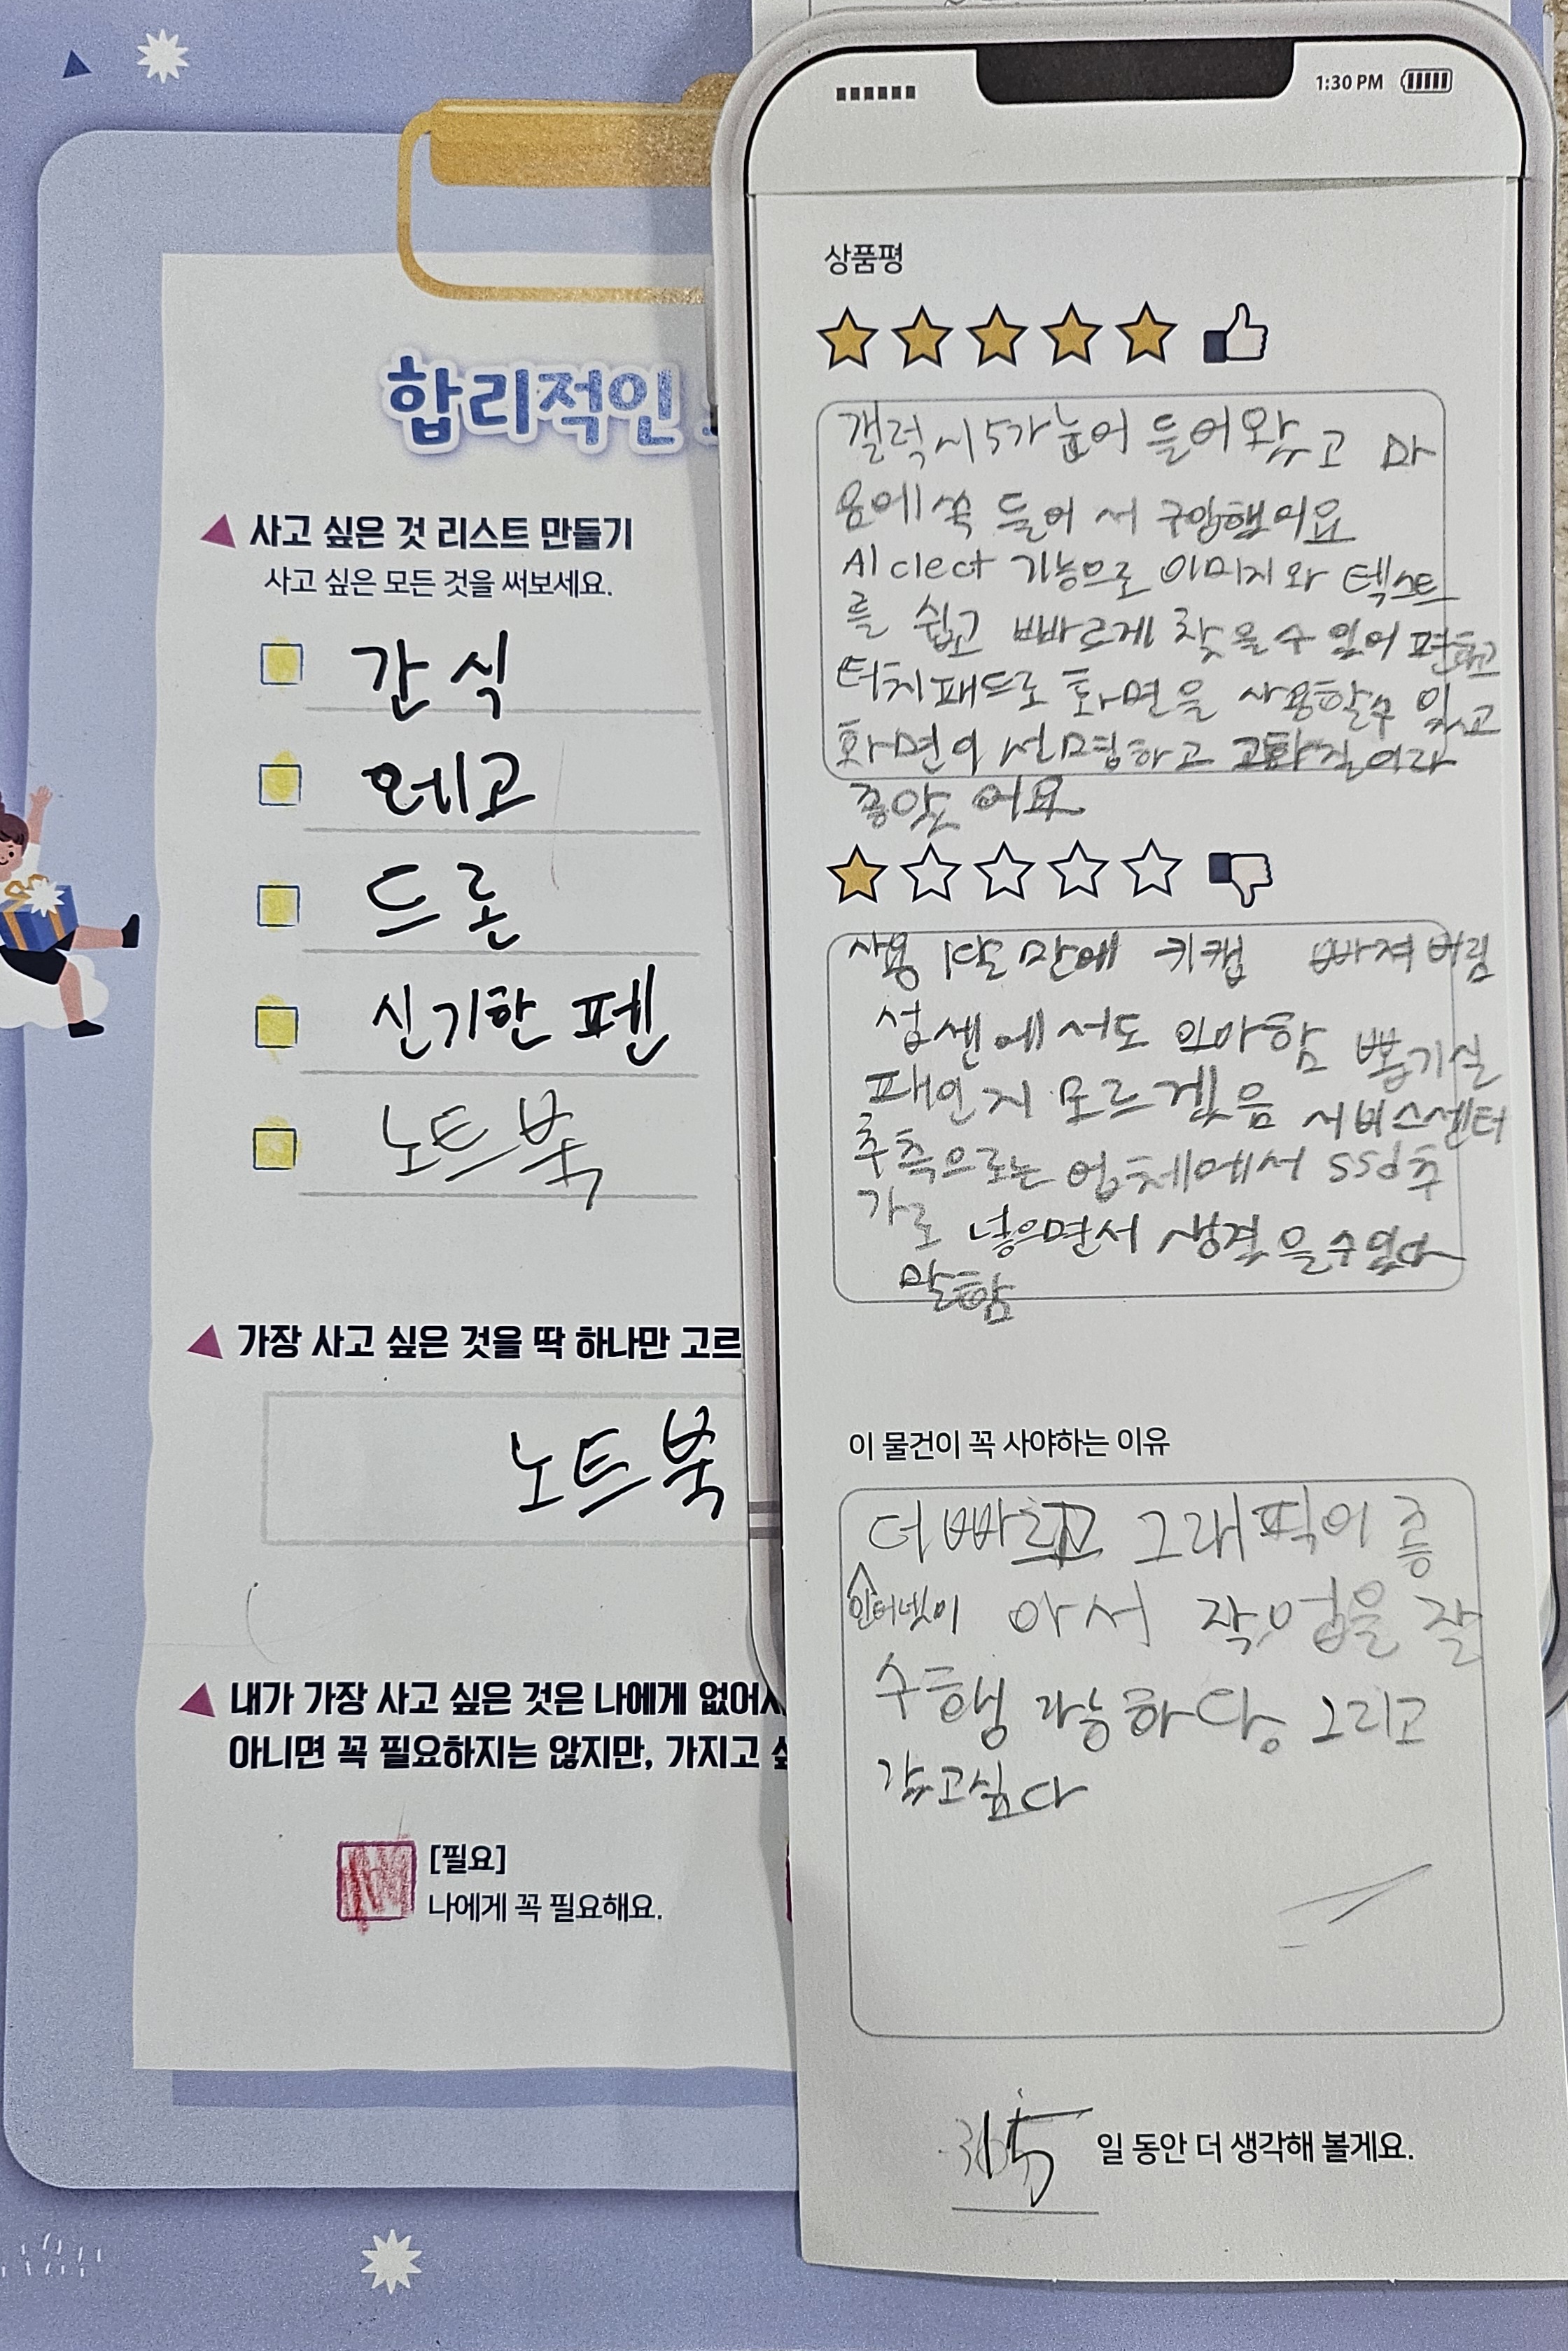 합리적인
사고 싶은 것 리스트 만들기
사고 싶은 모든 것을 써보세요.
간식
레고
드론
신기한 펜
노트북
가장 사고 싶은 것을 딱 하나만 고르
노트북
내가 가장 사고 싶은 것은 나에게 없어
아니면 꼭 필요하지는 않지만, 가지고
[필요]
나에게 꼭 필요해요.
1:30 PM
상품평
갤럭시5가 눈에 들어왔고 마
음에 쏙 들어서 구입했어요
AI clect 기능으로 이미지와 텍스트
를 쉽고 빠르게 찾을수 있어 편하고
터치패드로 화면을 사용할수 있고
화면이 선명하고 고화질이라
좋았어요
사용 1달만에 키캡 빠져버림
섭센에서도 의아함 뽑기실
패인지 모르겠음 서비스센터
추측으로는 업체에서 ssd추
가로 넣으면서 생겼을수있다
말함
이 물건이 꼭 사야하는 이유
더 빠르고 그래픽이 좋
인터넷이 아서 작업을 잘
수행 가능하다. 그리고
갖고싶다
일 동안 더 생각해 볼게요.